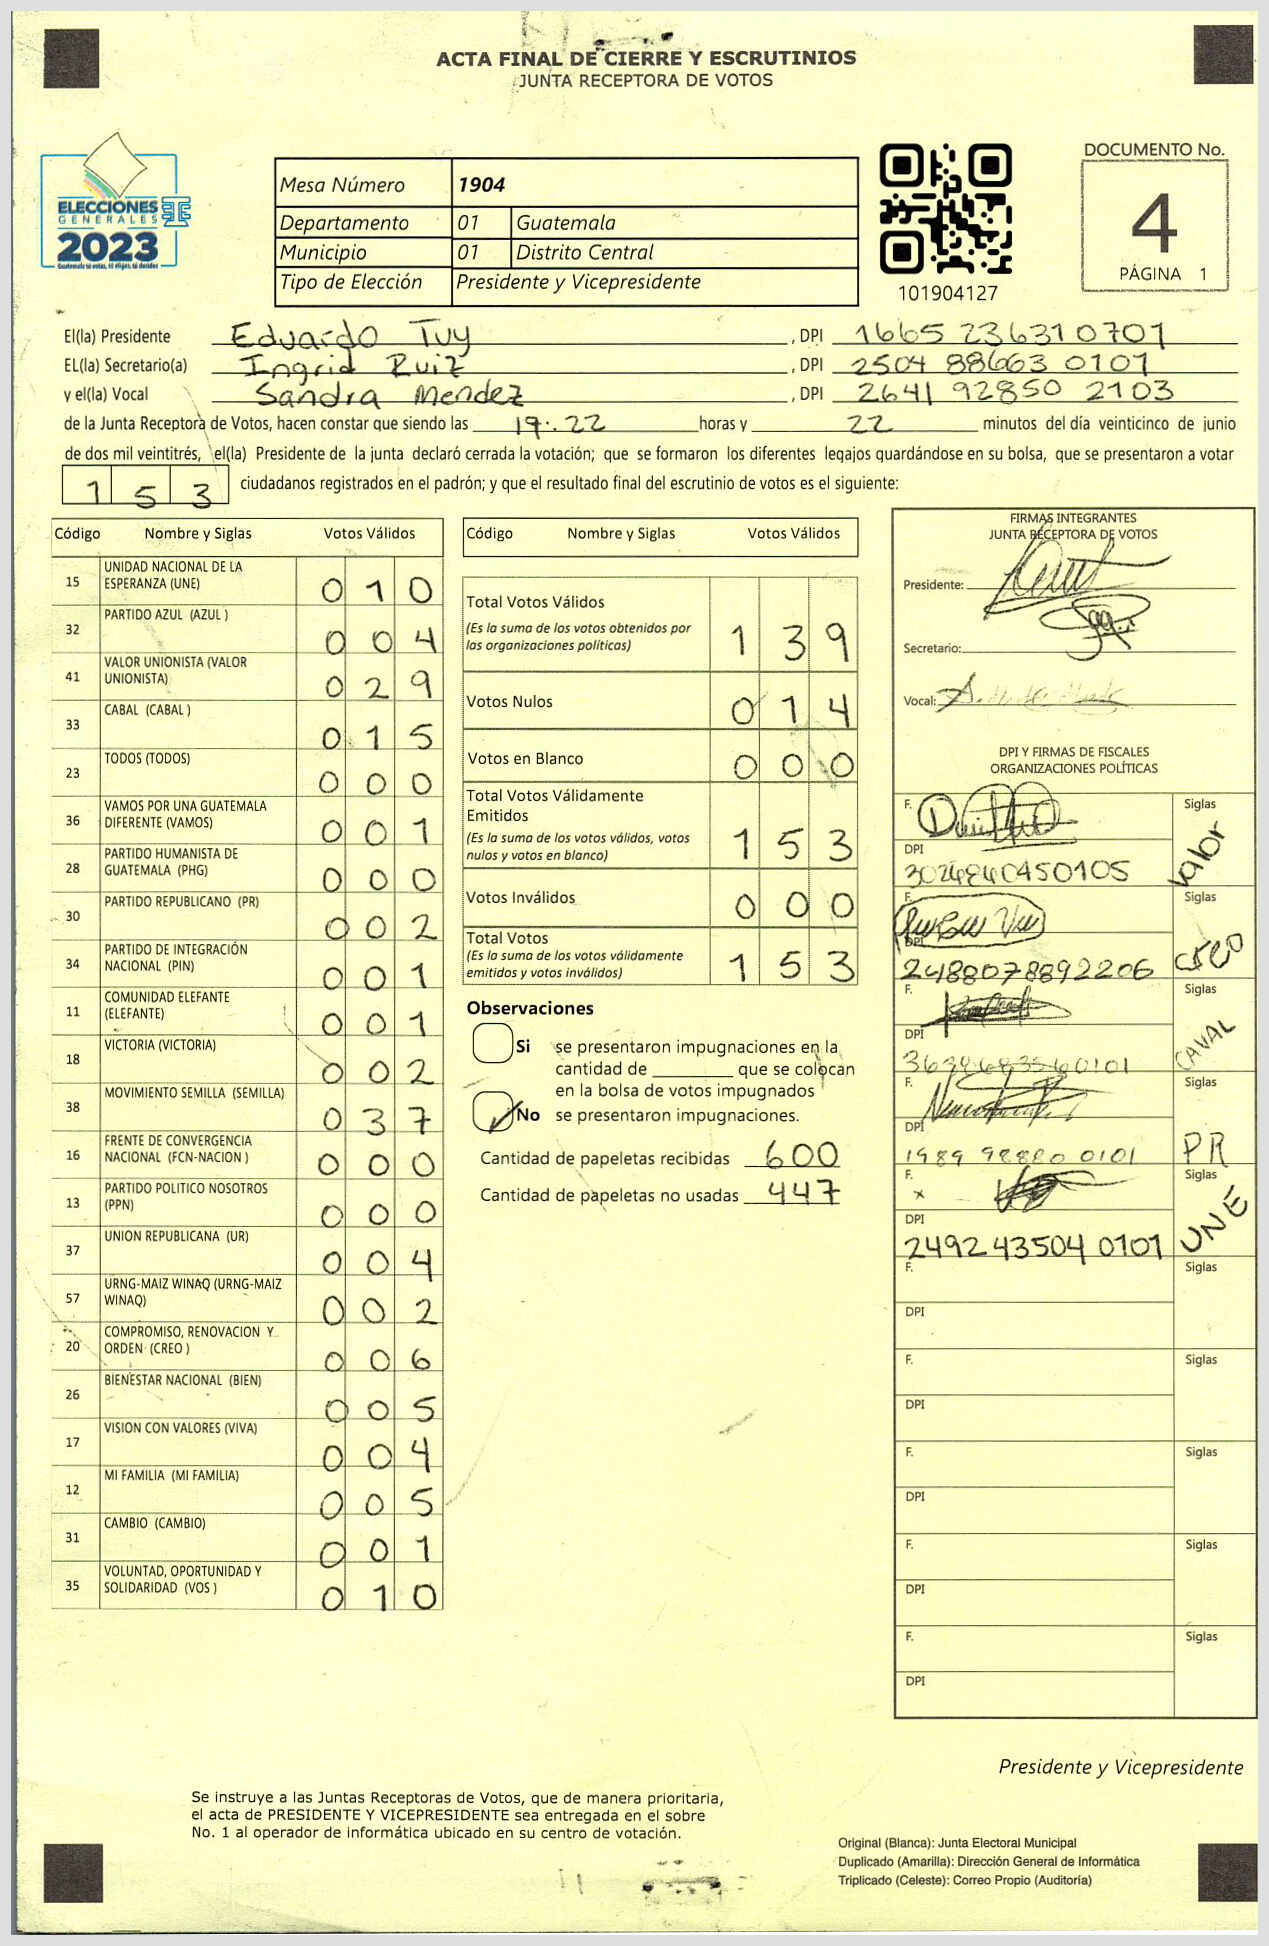 ACTA FINAL DE CIERRE Y ESCRUTINIOS
JUNTA RECEPTORA DE VOTOS
ELECCIONES
GENERALES
2023
Mesa Número 1904
Departamento 01 Guatemala
Municipio 01 Distrito Central
Tipo de Elección Presidente y Vicepresidente
101904127
DOCUMENTO No.
4
PÁGINA 1
El(la) Presidente Eduardo Tuy , DPI 1665 23631 0701
EL(la) Secretario(a) Ingrid Ruiz , DPI 2504 88663 0101
y el(la) Vocal Sandra Mendez , DPI 2641 92850 2103
de la Junta Receptora de Votos, hacen constar que siendo las 19:22 horas y 22 minutos del día veinticinco de junio
de dos mil veintitrés, el(la) Presidente de la junta declaró cerrada la votación; que se formaron los diferentes legajos guardándose en su bolsa, que se presentaron a votar
153 ciudadanos registrados en el padrón; y que el resultado final del escrutinio de votos es el siguiente:
Código Nombre y Siglas Votos Válidos
15 UNIDAD NACIONAL DE LA ESPERANZA (UNE) 010
32 PARTIDO AZUL (AZUL ) 004
41 VALOR UNIONISTA (VALOR UNIONISTA) 029
33 CABAL (CABAL ) 015
23 TODOS (TODOS) 000
36 VAMOS POR UNA GUATEMALA DIFERENTE (VAMOS) 001
28 PARTIDO HUMANISTA DE GUATEMALA (PHG) 000
30 PARTIDO REPUBLICANO (PR) 002
34 PARTIDO DE INTEGRACIÓN NACIONAL (PIN) 001
11 COMUNIDAD ELEFANTE (ELEFANTE) 001
18 VICTORIA (VICTORIA) 002
38 MOVIMIENTO SEMILLA (SEMILLA) 037
16 FRENTE DE CONVERGENCIA NACIONAL (FCN-NACION ) 000
13 PARTIDO POLITICO NOSOTROS (PPN) 000
37 UNION REPUBLICANA (UR) 004
57 URNG-MAIZ WINAQ (URNG-MAIZ WINAQ) 002
20 COMPROMISO, RENOVACION Y ORDEN (CREO ) 006
26 BIENESTAR NACIONAL (BIEN) 005
17 VISION CON VALORES (VIVA) 004
12 MI FAMILIA (MI FAMILIA) 005
31 CAMBIO (CAMBIO) 001
35 VOLUNTAD, OPORTUNIDAD Y SOLIDARIDAD (VOS ) 010
Código Nombre y Siglas Votos Válidos
Total Votos Válidos
(Es la suma de los votos obtenidos por
las organizaciones políticas) 139
Votos Nulos 014
Votos en Blanco 000
Total Votos Válidamente
Emitidos
(Es la suma de los votos válidos, votos
nulos y votos en blanco) 153
Votos Inválidos 000
Total Votos
(Es la suma de los votos válidamente
emitidos y votos inválidos) 153
Observaciones
Si se presentaron impugnaciones en la
cantidad de ________ que se colocan
en la bolsa de votos impugnados
No se presentaron impugnaciones.
Cantidad de papeletas recibidas 600
Cantidad de papeletas no usadas 447
FIRMAS INTEGRANTES
JUNTA RECEPTORA DE VOTOS
Presidente:
Secretario:
Vocal:
DPI Y FIRMAS DE FISCALES
ORGANIZACIONES POLÍTICAS
F. Siglas
DPI Valor
F. Siglas
DPI
2488078892206 CREO
F. Siglas
DPI CAVAL
F. Siglas
DPI
1989 98880 0101 PR
F. Siglas
x
DPI
2492 43504 0101 UNE
F. Siglas
DPI
F. Siglas
DPI
F. Siglas
DPI
F. Siglas
DPI
F. Siglas
DPI
Presidente y Vicepresidente
Se instruye a las Juntas Receptoras de Votos, que de manera prioritaria,
el acta de PRESIDENTE Y VICEPRESIDENTE sea entregada en el sobre
No. 1 al operador de informática ubicado en su centro de votación.
Original (Blanca): Junta Electoral Municipal
Duplicado (Amarilla): Dirección General de Informática
Triplicado (Celeste): Correo Propio (Auditoría)